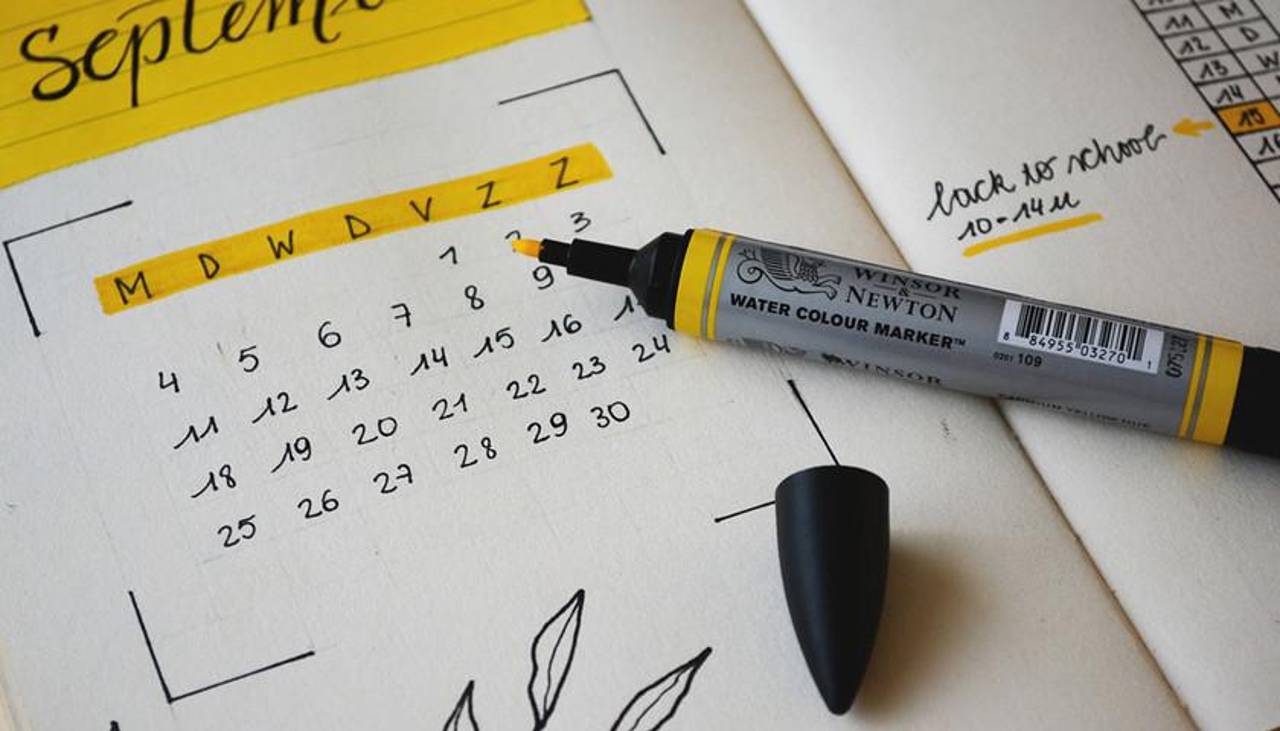 Septem
M D W D V Z Z
1 2 3
4 5 6 7 8 9
11 12 13 14 15 16
18 19 20 21 22 23 24
25 26 27 28 29 30
11 M
12 D
13 W
14
15
16
back to school
10-14u
WINSOR
&
NEWTON
WATER COLOUR MARKER™
8 84955 03270 1
0201 109
WINSOR